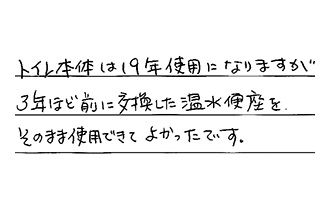 トイレ本体は19年使用になりますが
3年ほど前に交換した温水便座を
そのまま使用できてよかったです。